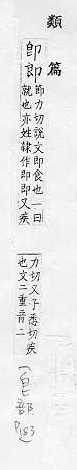 類篇
卽即 節力切說文即食也一曰
就也亦姓隸作即即又疾
力切又子悉切疾
也文二重音二
(皀部 P183)